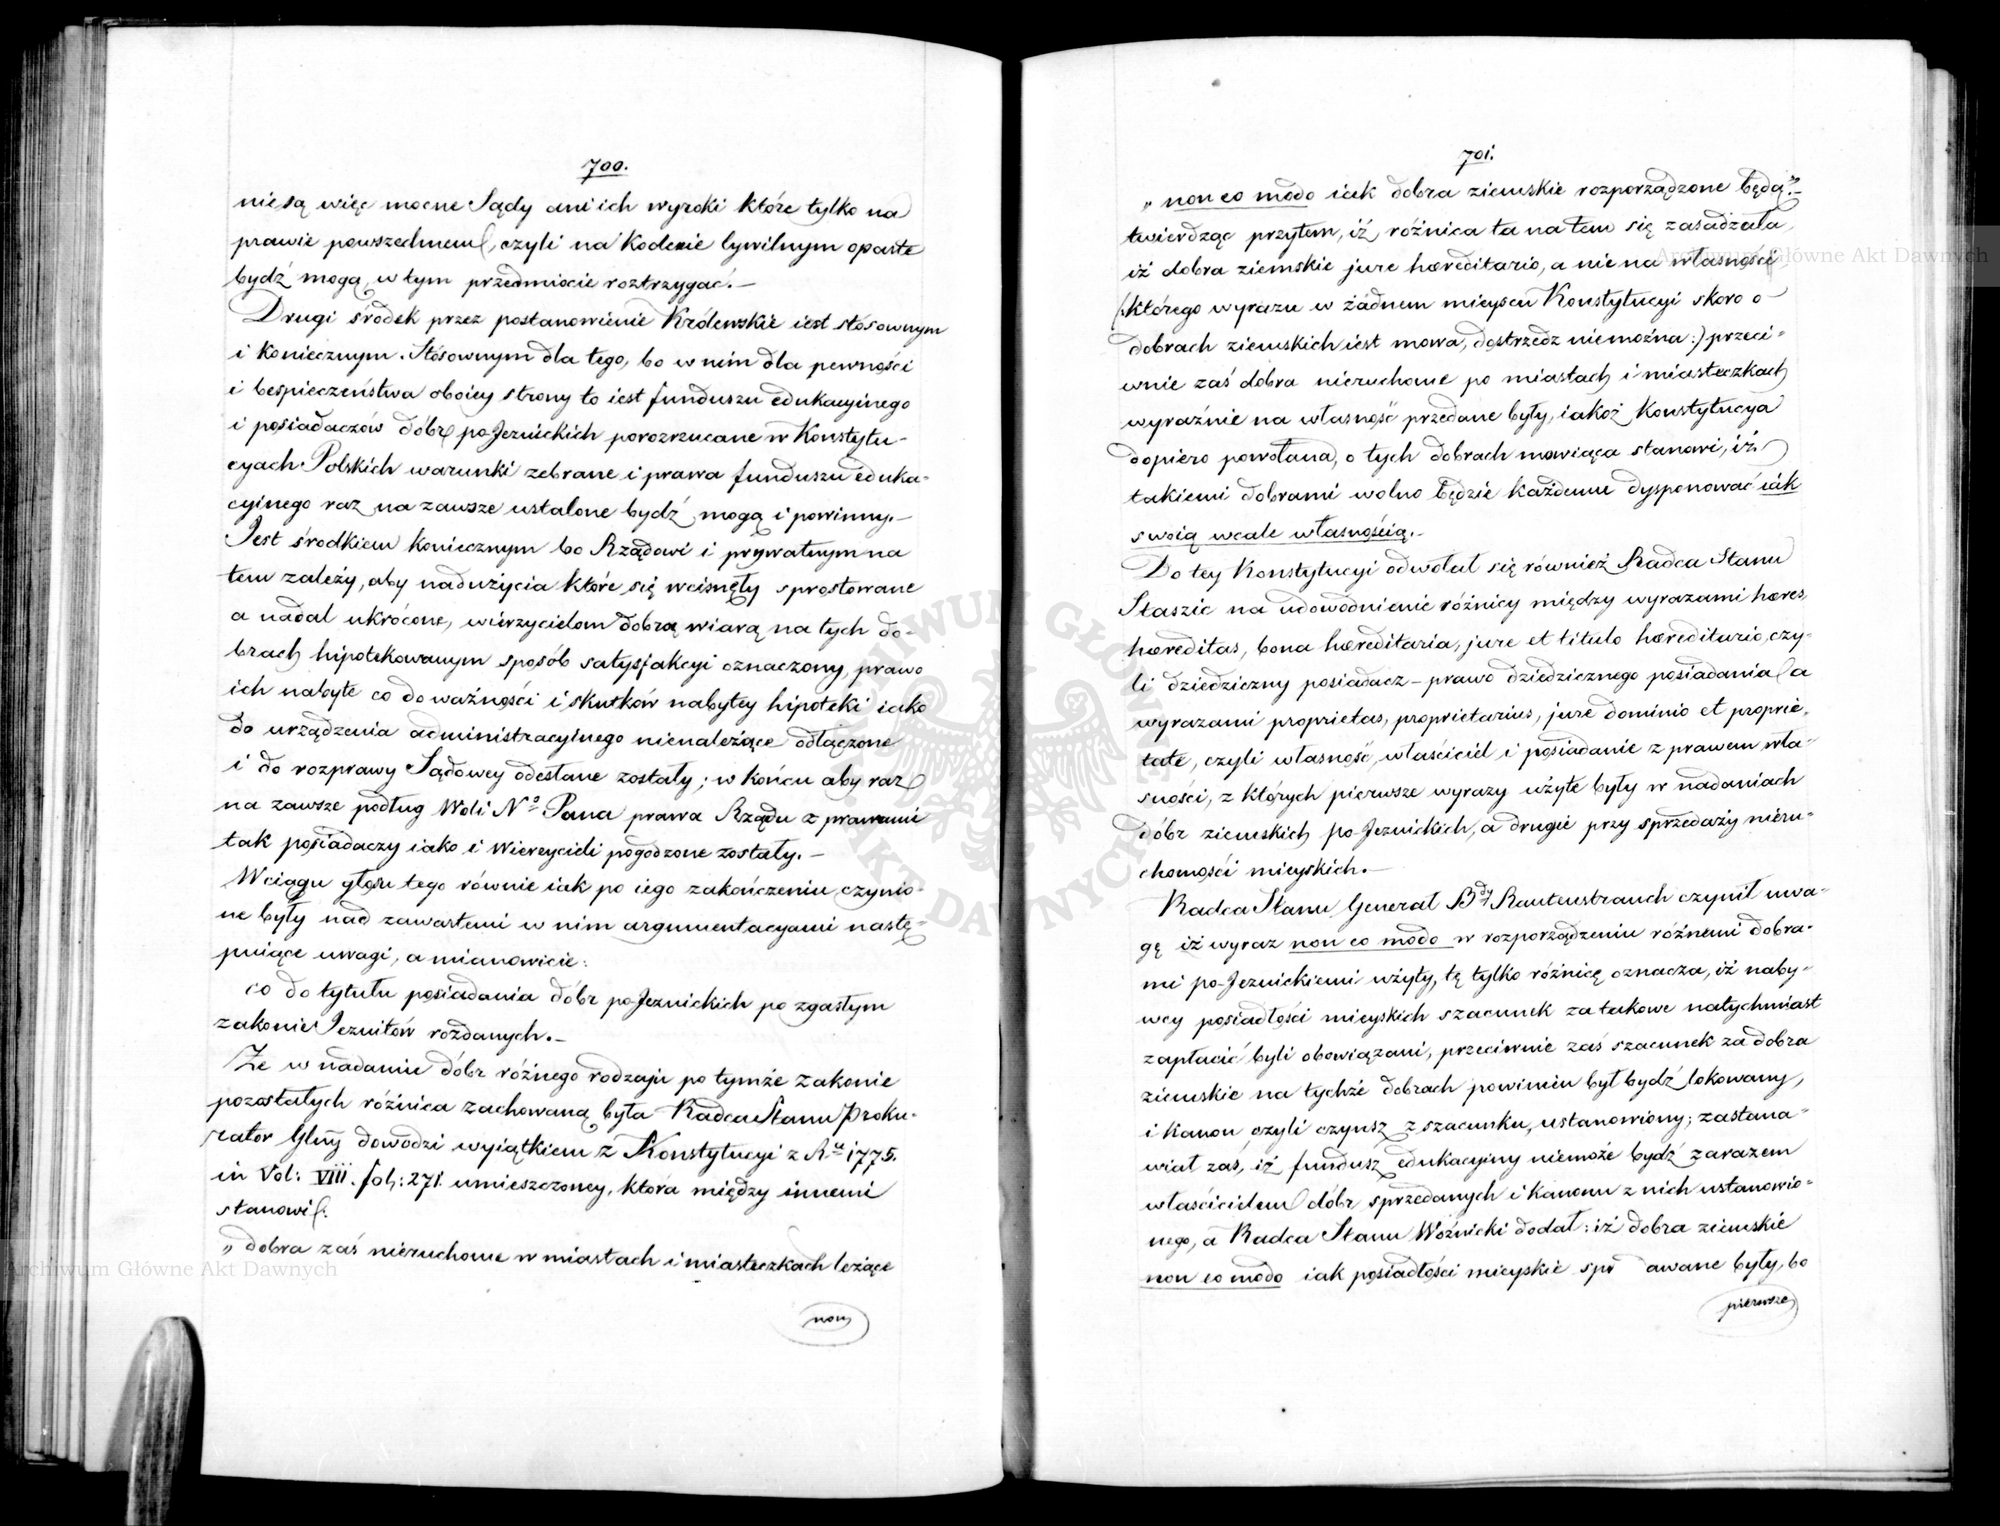 700.
nie są więc mocne Sądy ani ich wyroki które tylko na
prawie powszechnem, czyli na Kodexie Cywilnym oparte
bydź mogą, w tym przedmiocie roztrzygać.—
Drugi środek przez postanowienie Królewskie iest stósownym
i koniecznym. Stósownym dla tego, bo w nim dla pewności
i bespieczeństwa oboiey strony to iest funduszu edukacyinego
i posiadaczów dóbr po-Jezuickich porozrzucane w Konstytu-
cyach Polskich warunki zebrane i prawa funduszu eduka-
cyinego raz na zawsze ustalone bydź mogą i powinny.—
Jest środkiem koniecznym bo Rządowi i prywatnym na
tem zależy, aby nadużycia które się wcisnęły sprostowane
a nadal ukrócone, wierzycielom dobrą wiarą na tych do-
brach hipotekowanym sposób satysfakcyi oznaczony, prawo
ich nabyte co do ważności i skutków nabytey hipoteki iako
do urządzenia administracyinego nienależące odłączone
i do rozprawy Sądowey odesłane zostały; w końcu aby raz
na zawsze podług Woli Nº Pana prawa Rządu z prawami
tak posiadaczy iako i Wierzycieli pogodzone zostały.—
W ciągu głosu tego równie iak po iego zakończeniu czynio-
ne były nad zawartemi w nim argumentacyami nastę-
puiące uwagi, a mianowicie:
co do tytułu posiadania dóbr po-Jezuickich po zgasłym
zakonie Jezuitów rozdanych.—
Że w nadaniu dóbr różnego rodzaju po tymże zakonie
pozostałych różnica zachowaną była Radca Stanu Proku-
rator Glny dowodzi wyiątkiem z Konstytucyi z Ru 1775.
in Vol: VIII. fol: 271. umieszczoney, która między innemi
stanowi:
„dobra zaś nieruchome w miastach i miasteczkach leżące
non
701.
„non eo modo iak dobra ziemskie rozporządzone będą".—
twierdząc przytem, iż różnica ta na tem się zasadzała,
iż dobra ziemskie jure hæreditario, a nie na własności
(:którego wyrazu w żadnem mieyscu Konstytucyi skoro o
dobrach ziemskich iest mowa, dostrzedz niemożna:) przeci-
wnie zaś dobra nieruchome po miastach i miasteczkach
wyraźnie na własność przedane były, iakoż Konstytucya
dopiero powołana, o tych dobrach mowiąca stanowi, iż
takiemi dobrami wolno będzie każdemu dysponować iak
swoią wcale własnością.—
Do tey Konstytucyi odwołał się również Radca Stanu
Staszic na udowodnienie różnicy między wyrazami hæres,
hæreditas, bona hæreditaria, jure et titulo hæreditario, czy-
li dziedziczny posiadacz – prawo dziedzicznego posiadania a
wyrazami proprietas, proprietarius, jure dominio et proprie-
tate, czyli własność, właściciel i posiadanie z prawem wła-
sności, z których pierwsze wyrazy użyte były w nadaniach
dóbr ziemskich po-Jezuickich, a drugie przy sprzedaży nieru-
chomości mieyskich.—
Radca Stanu Generał Bdy Rautenstrauch czynił uwa-
gę iż wyraz non eo modo w rozporządzeniu różnemi dobra-
mi po-Jezuickiemi użyty, tę tylko różnicę oznacza, iż naby-
wcy posiadłości mieyskich szacunek za takowe natychmiast
zapłacić byli obowiązani, przeciwnie zaś szacunek za dobra
ziemskie na tychże dobrach powinien był bydź lokowany,
i kanon czyli czynsz z szacunku, ustanowiony; zastana-
wiał zaś, iż fundusz edukacyiny niemoże bydź zarazem
właścicielem dóbr sprzedanych i kanonu z nich ustanowio-
nego, a Radca Stanu Woźnicki dodał: iż dobra ziemskie
non eo modo iak posiadłości mieyskie spr awane były, bo
pierwsze
Archiwum Główne Akt Dawnych
Archiwum Główne Akt Dawnych
ARCHIWUM GŁÓWNE AKT DAWNYCH